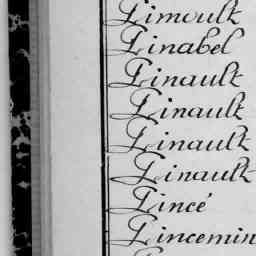 Pimoult
Pinabel
Pinault
Pinault
Pinault
Pinault
Pincé
Pincemin